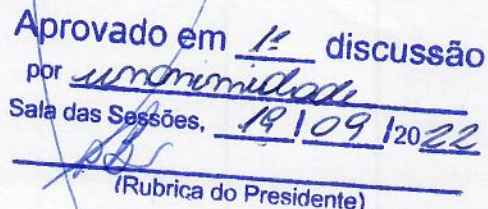 Aprovado em 1ª discussão
por unanimidade
Sala das Sessões, 19/09/2022
(Rubrica do Presidente)